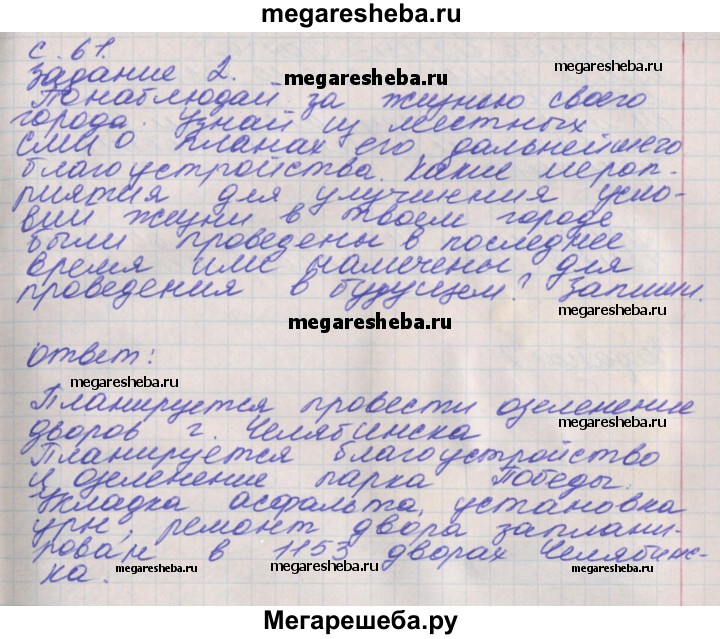 megaresheba.ru
с. 61.
Задание 2.
megaresheba.ru
megaresheba.ru
Понаблюдай за жизнью своего
города. Узнай из местных
megaresheba.ru
СМИ о планах его дальнейшего
благоустройства. Какие мероп-
риятия для улучшения усло-
вий жизни в твоем городе
были проведены в последнее
время или намечены для
проведения в будущем? Запиши.
megaresheba.ru
megaresheba.ru
Ответ:
megaresheba.ru
Планируется провести озеленение
megaresheba.ru
дворов г. Челябинска
Планируется благоустройство
и озеленение парка Победы.
megaresheba.ru
Укладка асфальта, установка
урн, ремонт двора заплани-
рован в 1153 дворах Челябинс-
ка.
megaresheba.ru
megaresheba.ru
megaresheba.ru
Мегарешеба.ру